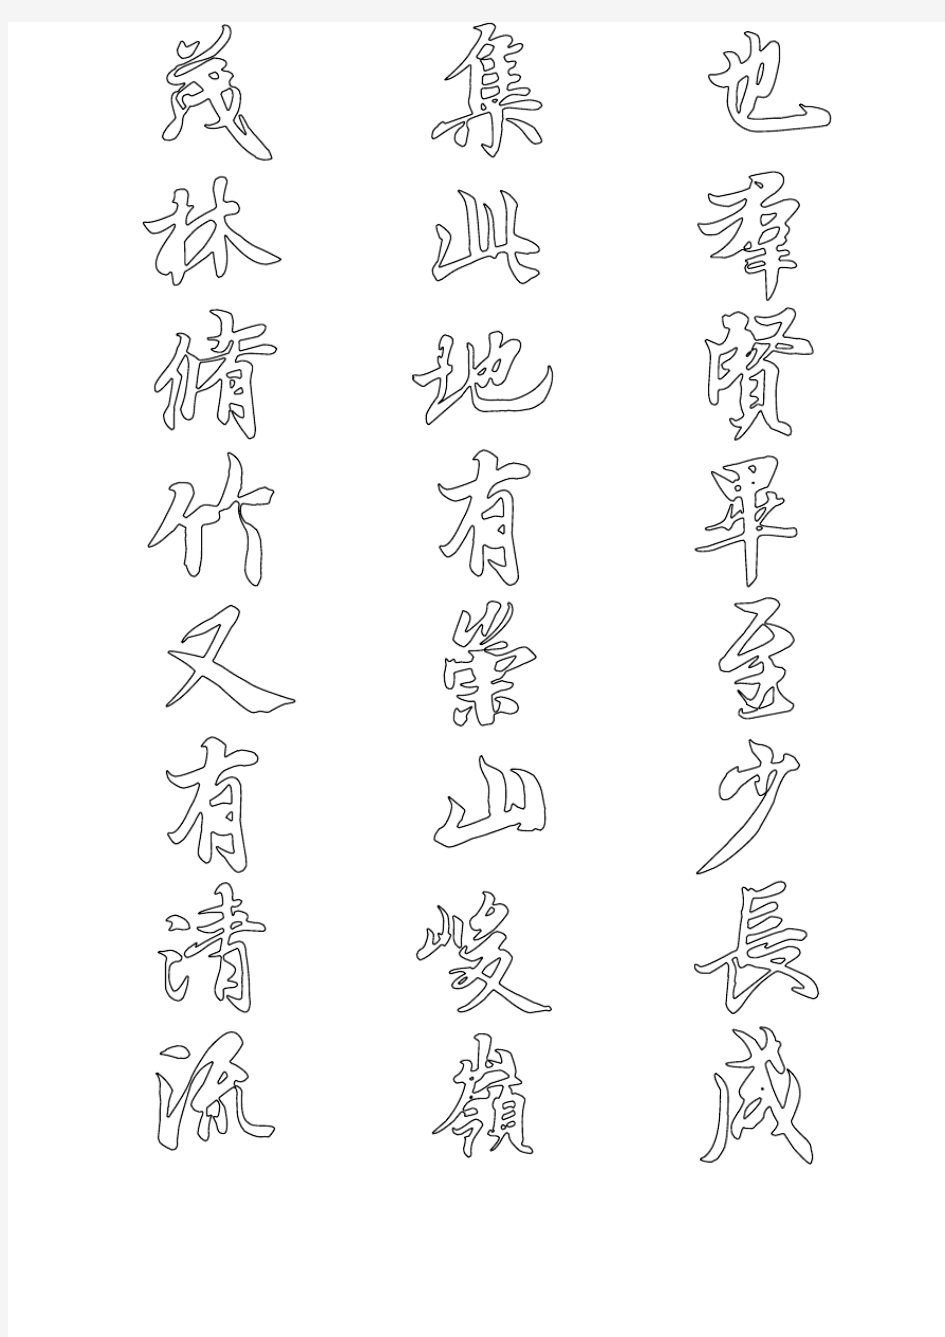 也羣賢畢至少長咸
集此地有崇山峻嶺
茂林脩竹又有清流